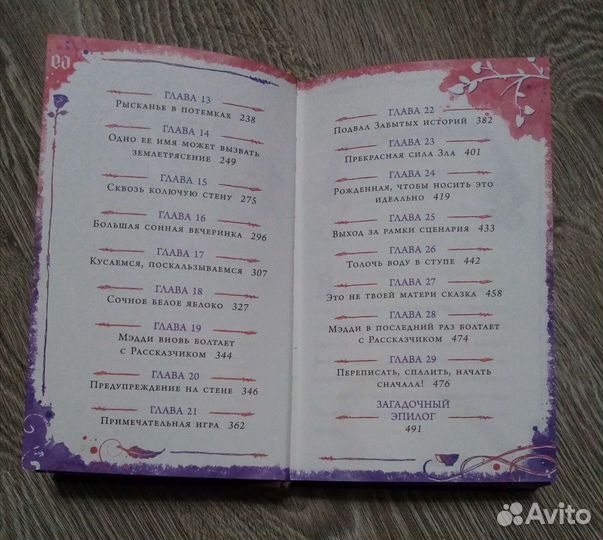 ГЛАВА 13
Рысканье в потемках 238
ГЛАВА 14
Одно ее имя может вызвать
землетрясение 249
ГЛАВА 15
Сквозь колючую стену 275
ГЛАВА 16
Большая сонная вечеринка 296
ГЛАВА 17
Кусаемся, поскальзываемся 307
ГЛАВА 18
Сочное белое яблоко 327
ГЛАВА 19
Мэдди вновь болтает
с Рассказчиком 344
ГЛАВА 20
Предупреждение на стене 346
ГЛАВА 21
Примечательная игра 362
ГЛАВА 22
Подвал Забытых историй 382
ГЛАВА 23
Прекрасная сила Зла 401
ГЛАВА 24
Рожденная, чтобы носить это
идеально 419
ГЛАВА 25
Выход за рамки сценария 433
ГЛАВА 26
Толочь воду в ступе 442
ГЛАВА 27
Это не твоей матери сказка 458
ГЛАВА 28
Мэдди в последний раз болтает
с Рассказчиком 474
ГЛАВА 29
Переписать, спалить, начать
сначала! 476
ЗАГАДОЧНЫЙ
ЭПИЛОГ
491
Avito